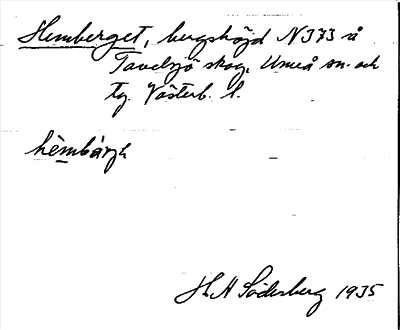 Hemberget, bergshöjd N 373 å
Tavelsjö skog, Umeå sn. och
tg. Västerb. l.
hèmbárjɛ
H. A Söderberg 1935